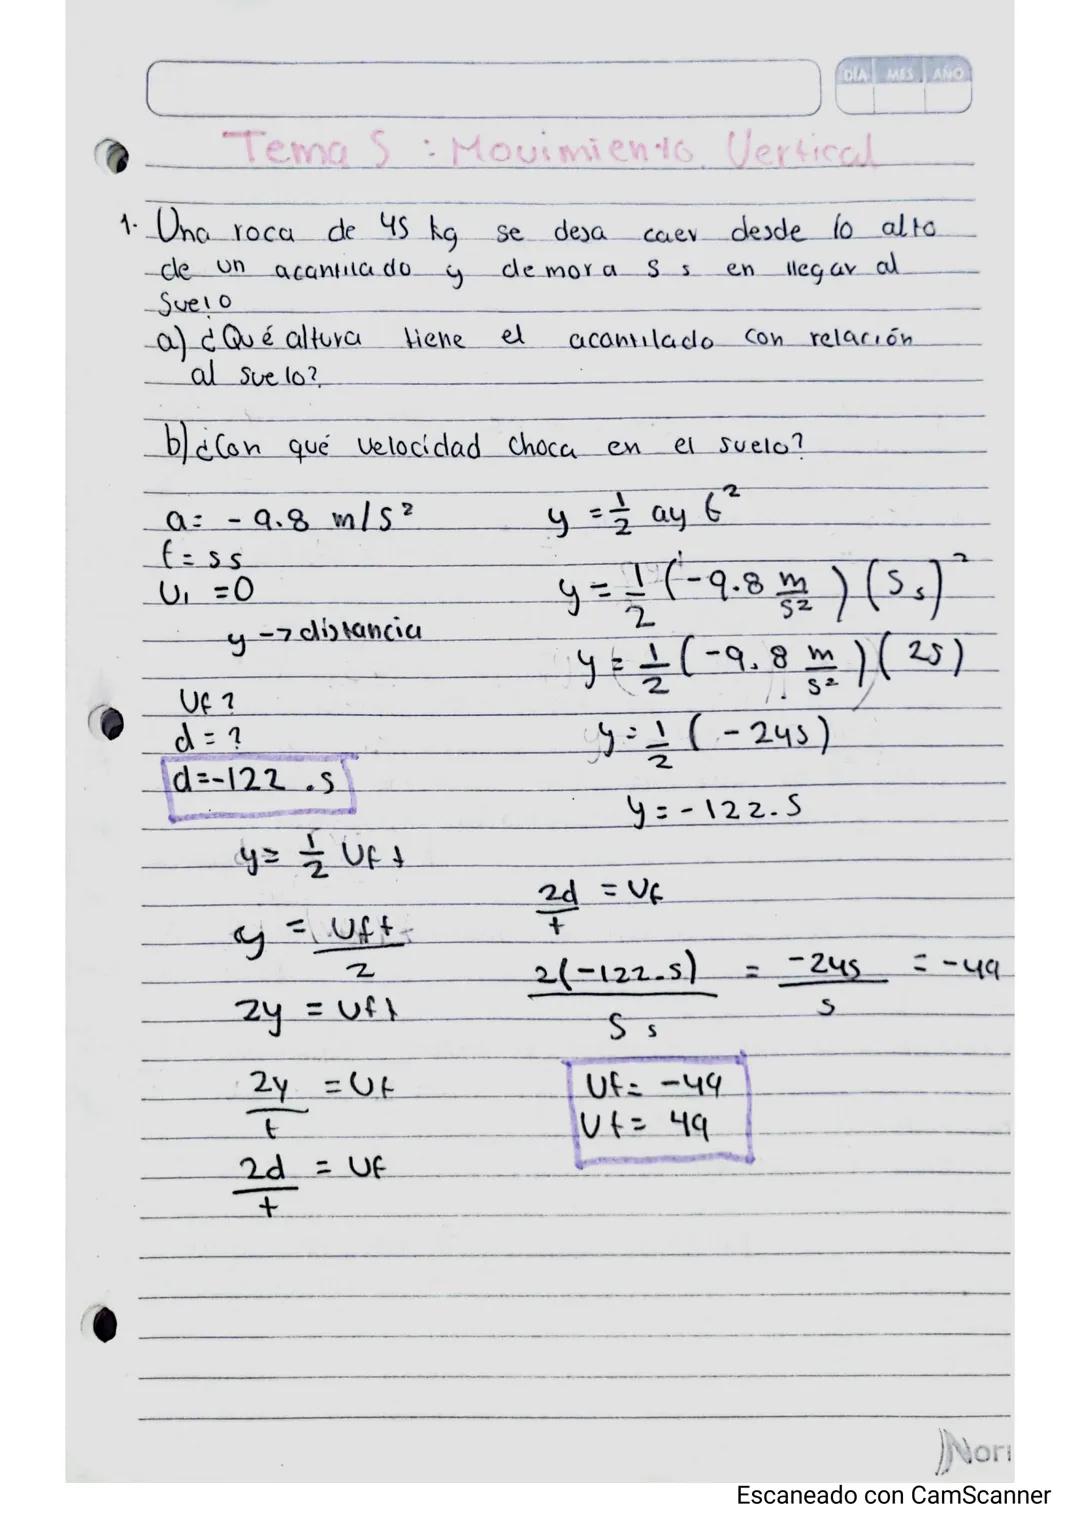 DÍA MES AÑO
Tema 5 : Movimiento Vertical
1. Una roca de 45 kg se deja caer desde lo alto
de un acantilado y demora 5 s en llegar al
Suelo
a) ¿Qué altura tiene el acantilado con relación
al suelo?
b) ¿Con qué velocidad choca en el suelo?
a = -9.8 m/s²
t = 5s
Vi = 0
y → distancia
Vf ?
d = ?
d=-122.5
y = 1/2 ay t²
y = 1/2 (-9.8 m/s²) (5s)²
y = 1/2 (-9.8 m/s²) (25)
y = 1/2 (-245)
y = -122.5
y = 1/2 Vf t
y = Vft/2
2y = Vft
2y/t = Vf
2d/t = Vf
2d/t = Vf
2(-122.5)/5s = -245/5 = -49
Vf = -49
Vf = 49
Nor
Escaneado con CamScanner